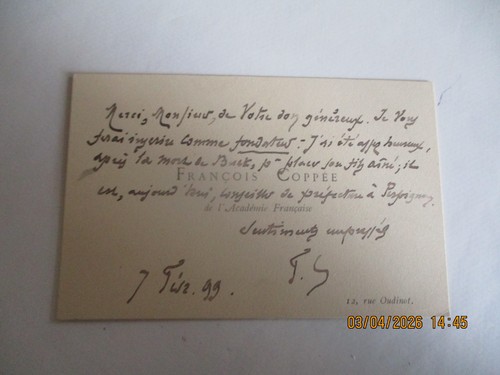 Merci, Monsieur, de Votre don généreux. Je Vous
ferai inscrire comme fondateur. – J'ai été assez heureux,
après la mort de                , pr placer son fils aîné ; il
FRANÇOIS COPPÉE
est, aujourd'hui, conseiller de préfecture à Perpignan.
de l'Académie Française
Sentiments empressés
F. C
7 Févr. 99.
12, rue Oudinot.
03/04/2026 14:45